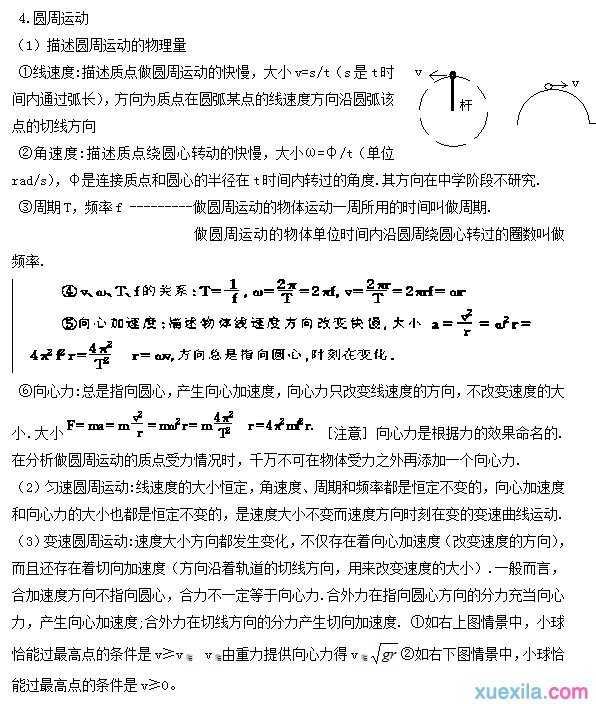 4.圆周运动
（1）描述圆周运动的物理量
①线速度:描述质点做圆周运动的快慢，大小v=s/t（s是t时
间内通过弧长），方向为质点在圆弧某点的线速度方向沿圆弧该
点的切线方向
v
杆
v
②角速度:描述质点绕圆心转动的快慢，大小ω=φ/t（单位
rad/s），φ是连接质点和圆心的半径在t时间内转过的角度.其方向在中学阶段不研究.
③周期T，频率f ---------做圆周运动的物体运动一周所用的时间叫做周期.
做圆周运动的物体单位时间内沿圆周绕圆心转过的圈数叫做
频率.
④v、ω、T、f的关系:T=1/f，ω=2π/T=2πf，v=2πr/T=2πrf=ωr
⑤向心加速度:描述物体线速度方向改变快慢，大小 a=v²/r=ω²r=
4π²f²r=4π²/T² r=ωv,方向总是指向圆心,时刻在变化.
⑥向心力:总是指向圆心，产生向心加速度，向心力只改变线速度的方向，不改变速度的大
小.大小F=ma=mv²/r=mω²r=m4π²/T² r=4π²mf²r. [注意] 向心力是根据力的效果命名的.
在分析做圆周运动的质点受力情况时，千万不可在物体受力之外再添加一个向心力.
（2）匀速圆周运动:线速度的大小恒定，角速度、周期和频率都是恒定不变的，向心加速度
和向心力的大小也都是恒定不变的，是速度大小不变而速度方向时刻在变的变速曲线运动.
（3）变速圆周运动:速度大小方向都发生变化，不仅存在着向心加速度（改变速度的方向），
而且还存在着切向加速度（方向沿着轨道的切线方向，用来改变速度的大小）.一般而言，
合加速度方向不指向圆心，合力不一定等于向心力.合外力在指向圆心方向的分力充当向心
力，产生向心加速度;合外力在切线方向的分力产生切向加速度. ①如右上图情景中，小球
恰能过最高点的条件是v≥v v由重力提供向心力得v√gr ②如右下图情景中，小球恰
能过最高点的条件是v≥0。
xuexila.com